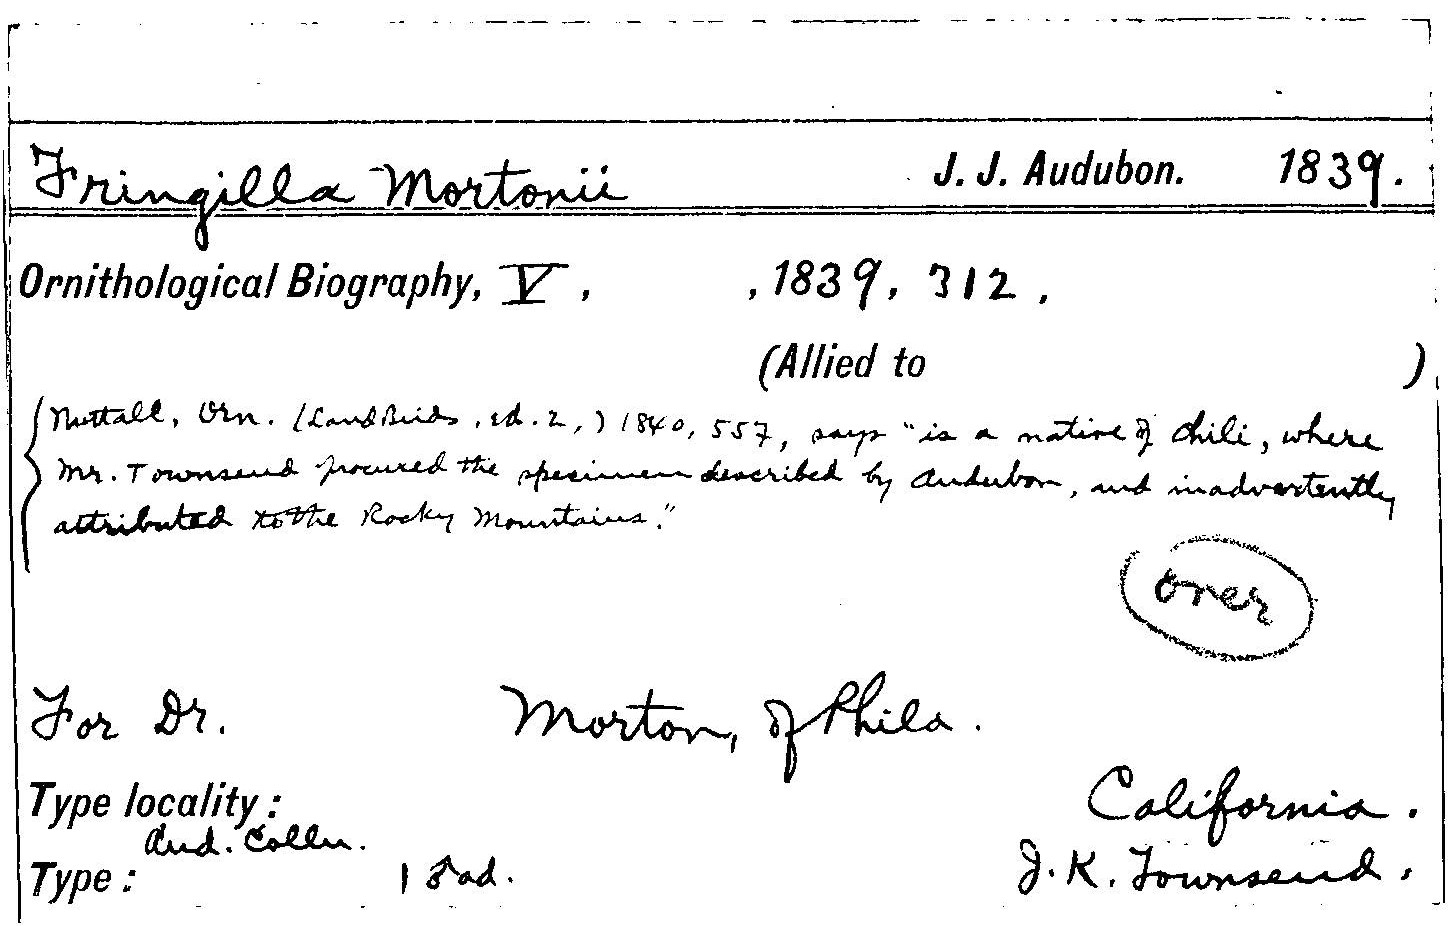 Fringilla Mortonii J. J. Audubon. 1839.
Ornithological Biography, V, , 1839, 312,
(Allied to )
Nuttall, Orn. (Land Birds, ed. 2,) 1840, 557, says "is a native of Chili, where
Mr. Townsend procured the specimen described by Audubon, and inadvertently
attributed to the Rocky Mountains."
over
For Dr. Morton, of Phila.
Type locality: California.
Aud. Colln.
Type: 1 ♂ ad. J. K. Townsend.